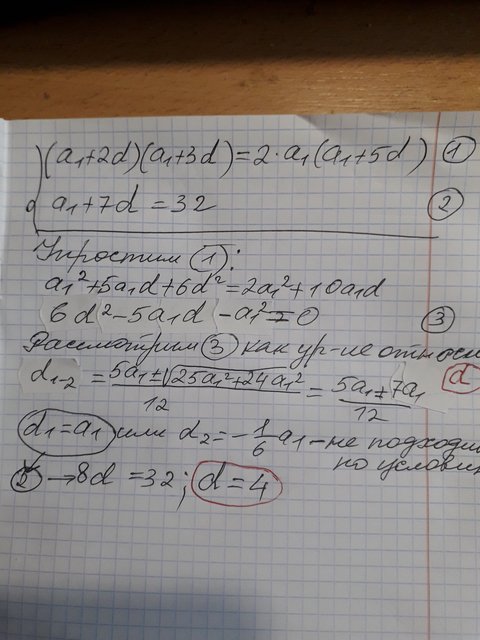 (a1+2d)(a1+3d)=2·a1(a1+5d) ①
a1+7d=32 ②
Упростим ①:
a1²+5a1d+6d²=2a1²+10a1d
6d²-5a1d-a1²=0 ③
Рассмотрим ③ как ур-ие относи
d1-2 = (5a1±√(25a1²+24a1²))/12 = (5a1±7a1)/12 d
d1=a1 или d2=-1/6 a1 - не подходи
по услови
② → 8d=32; d=4